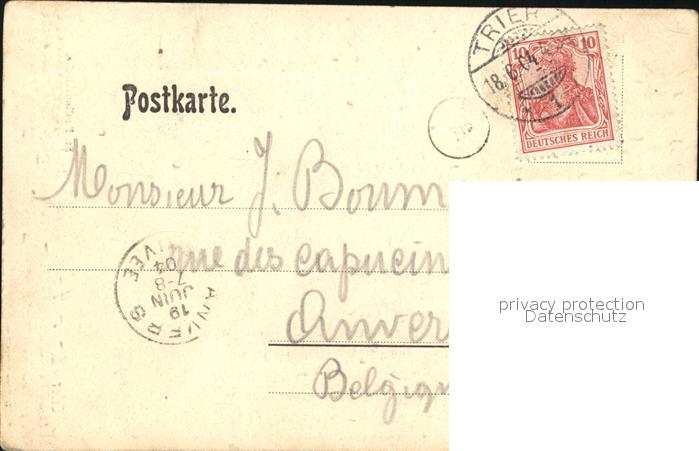 TRIER
18.6.04
1
10 10
DEUTSCHES REICH
Postkarte.
Monsieur J. Boum
rue des Capucin
Anver
Belgiqu
ANVERS
19
JUIN
7-8
04
privacy protection
Datenschutz